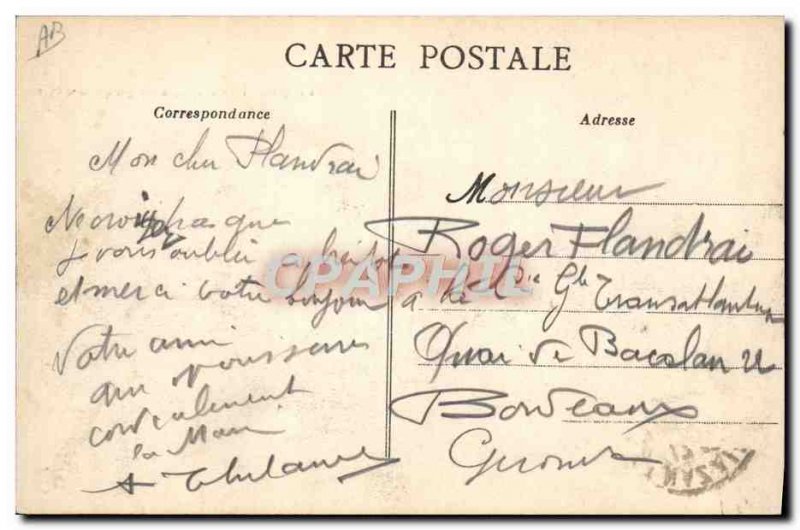 AB
CARTE POSTALE
Correspondance
Mon cher Flandrai
Ne croyez pas que
je vous oublie
et merci votre bonjour
Votre ami
qui
cordialement
la Main
Adresse
Monsieur
Roger Flandrai
à la Cie Gle Transatlantique
Quai de Bacalan
Bordeaux
Gironde
CPAPHIL